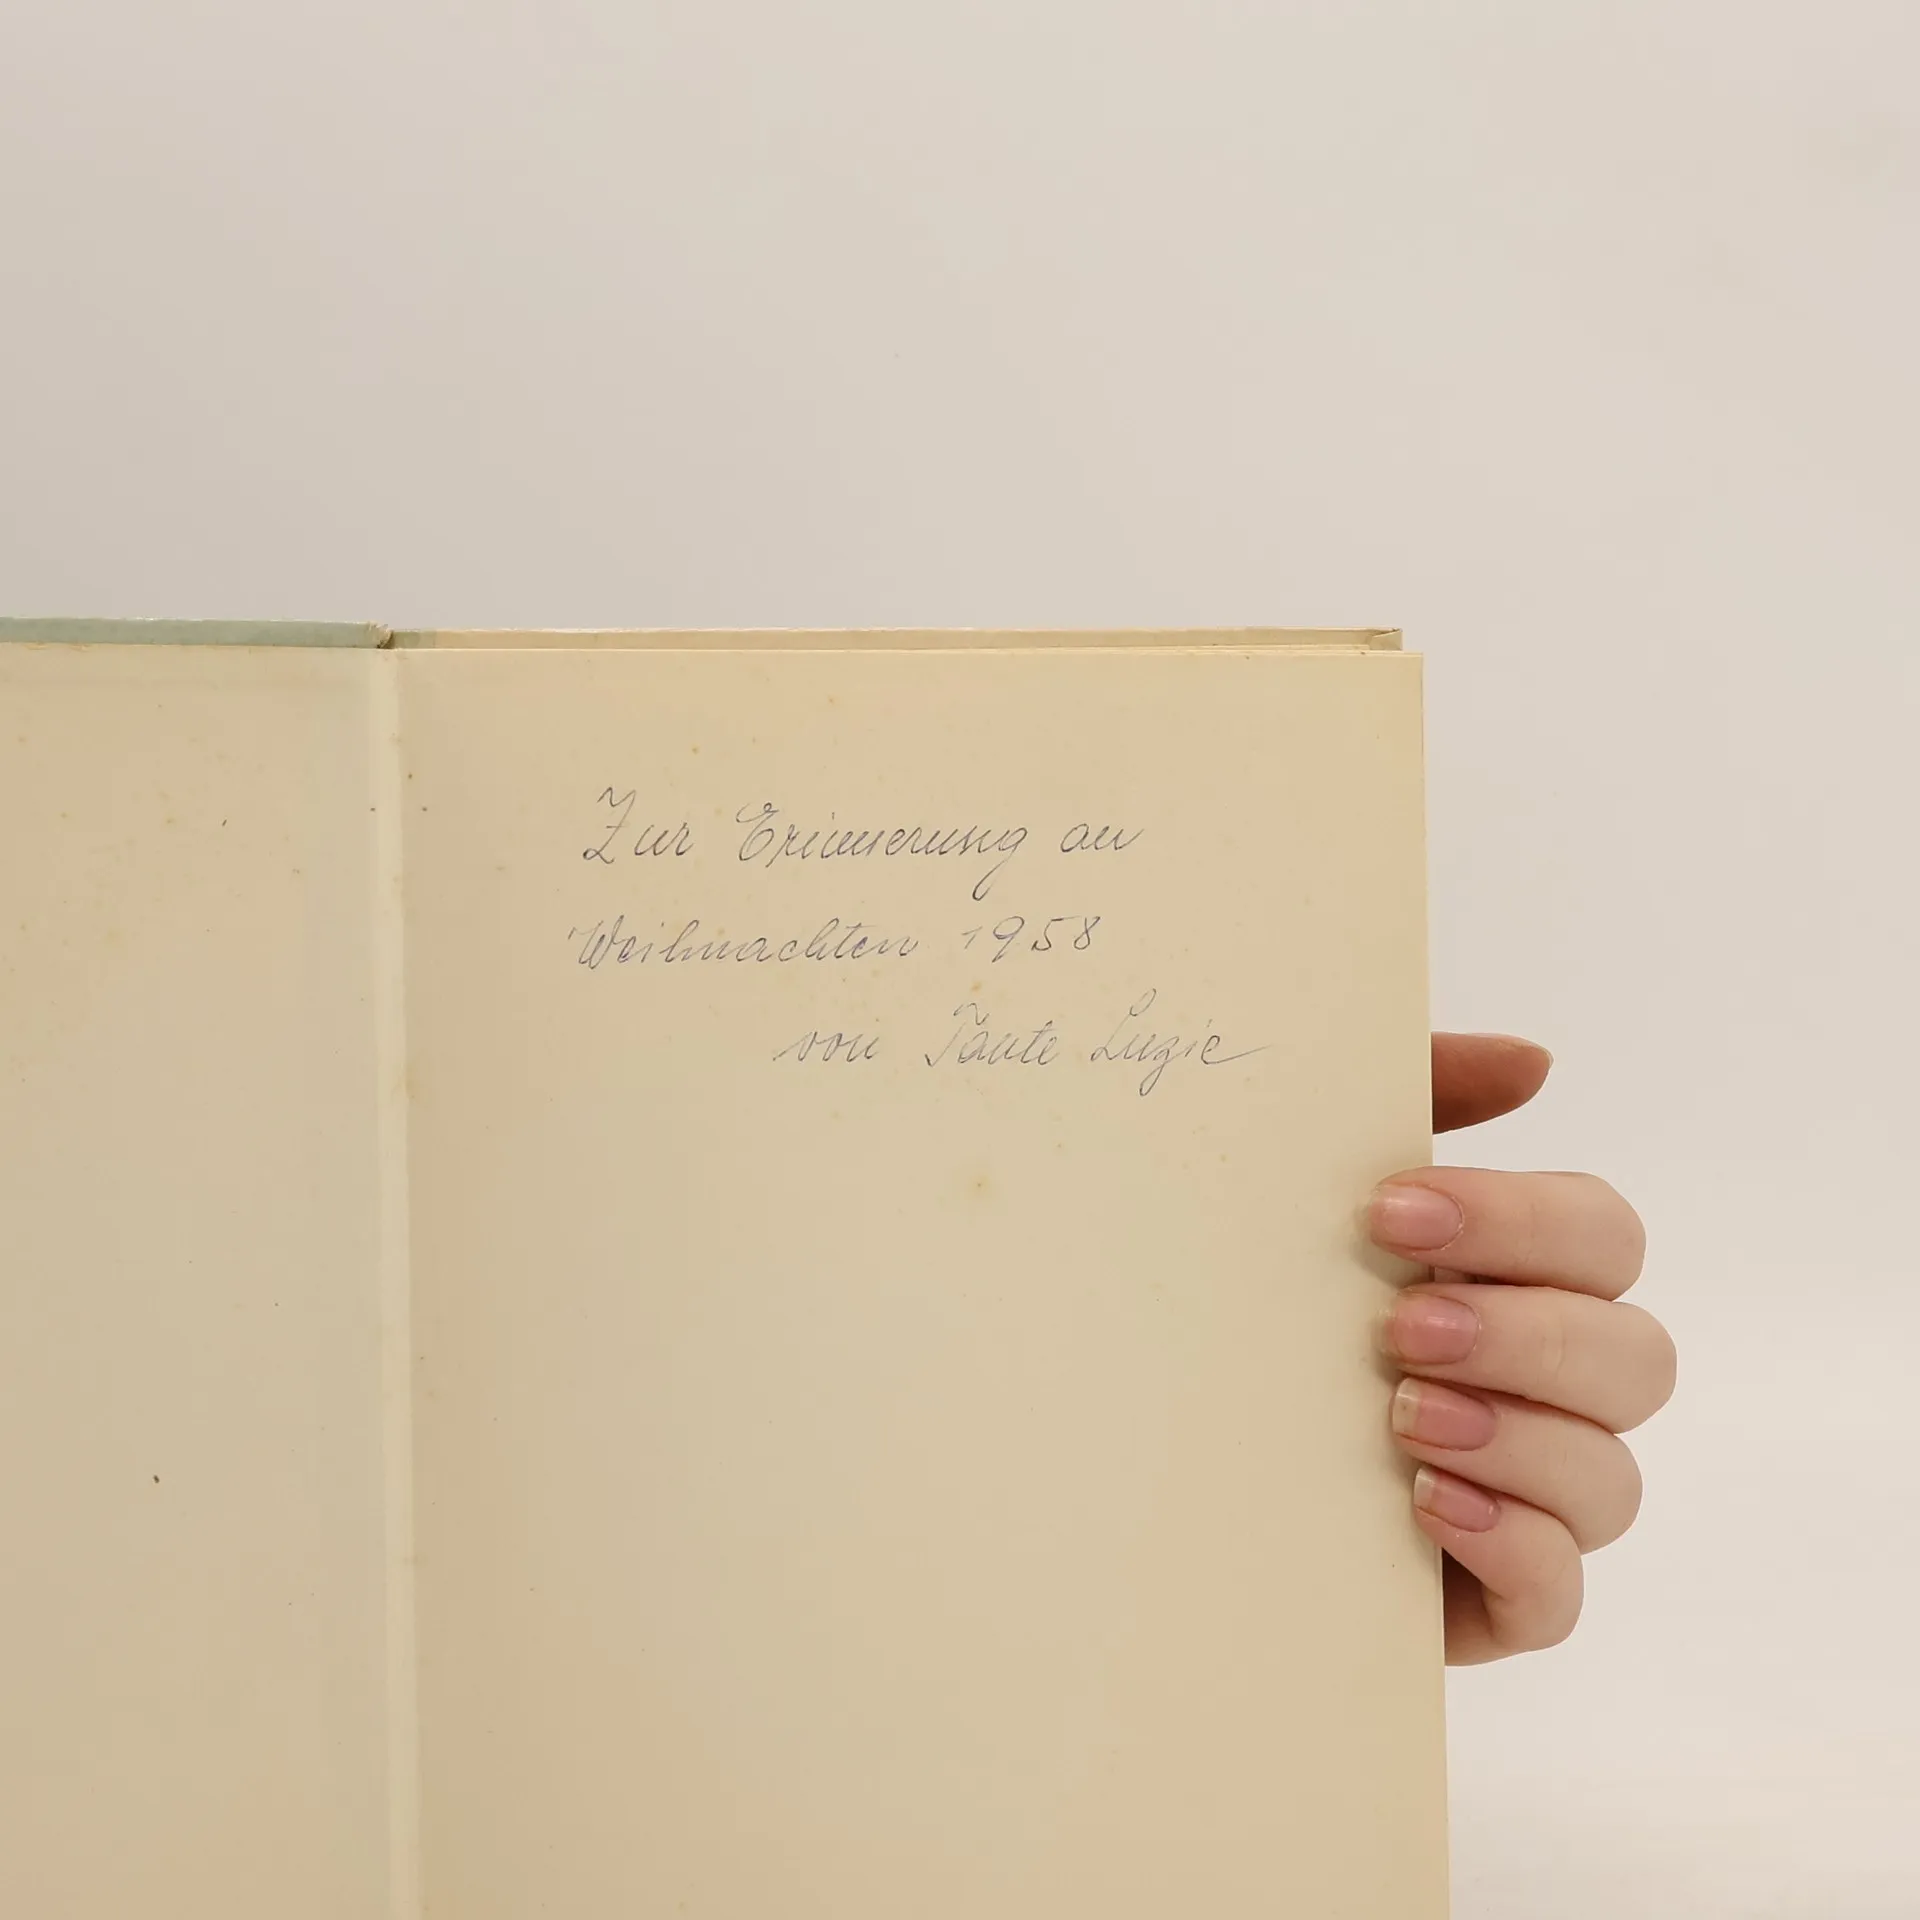 Zur Erinnerung an
Weihnachten 1958
von Tante Luzie